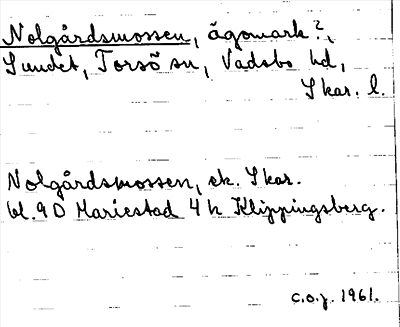 Nolgårdsmossen, ägomark?,
Sundet, Torsö sn, Vadsbo hd,
Skar. l.
Nolgårdsmossen, ek. Skar.
bl. 9D Mariestad 4 h Klippingsberg.
c.o.j. 1961.